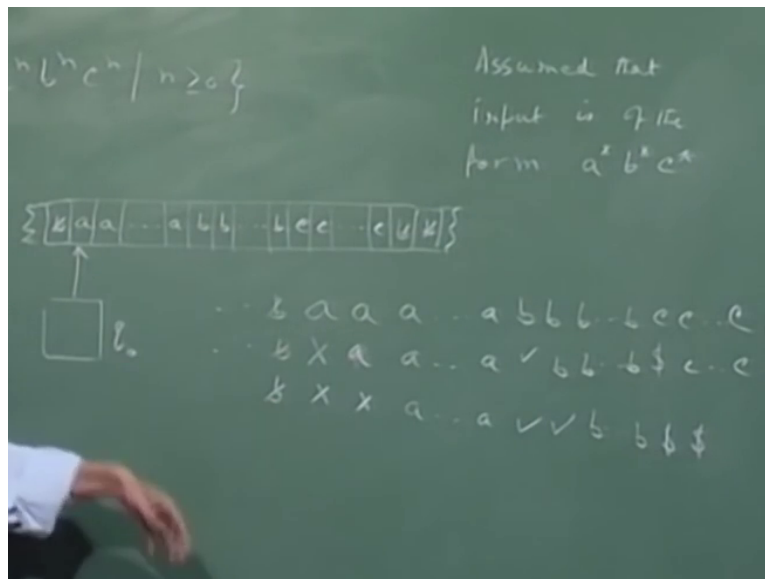 ⁿ bⁿ cⁿ | n ≥ 0 }
Assumed that
input is of the
form a* b* c*
{ ƀ a a ... a b b ... b c c ... c ƀ ƀ }
q₀
.. ƀ a a a ... a b b b .. b c c .. c
.. ƀ X a a ... a ✓ b b .. b $ c .. c
ƀ X X a ... a ✓ ✓ b b $ $